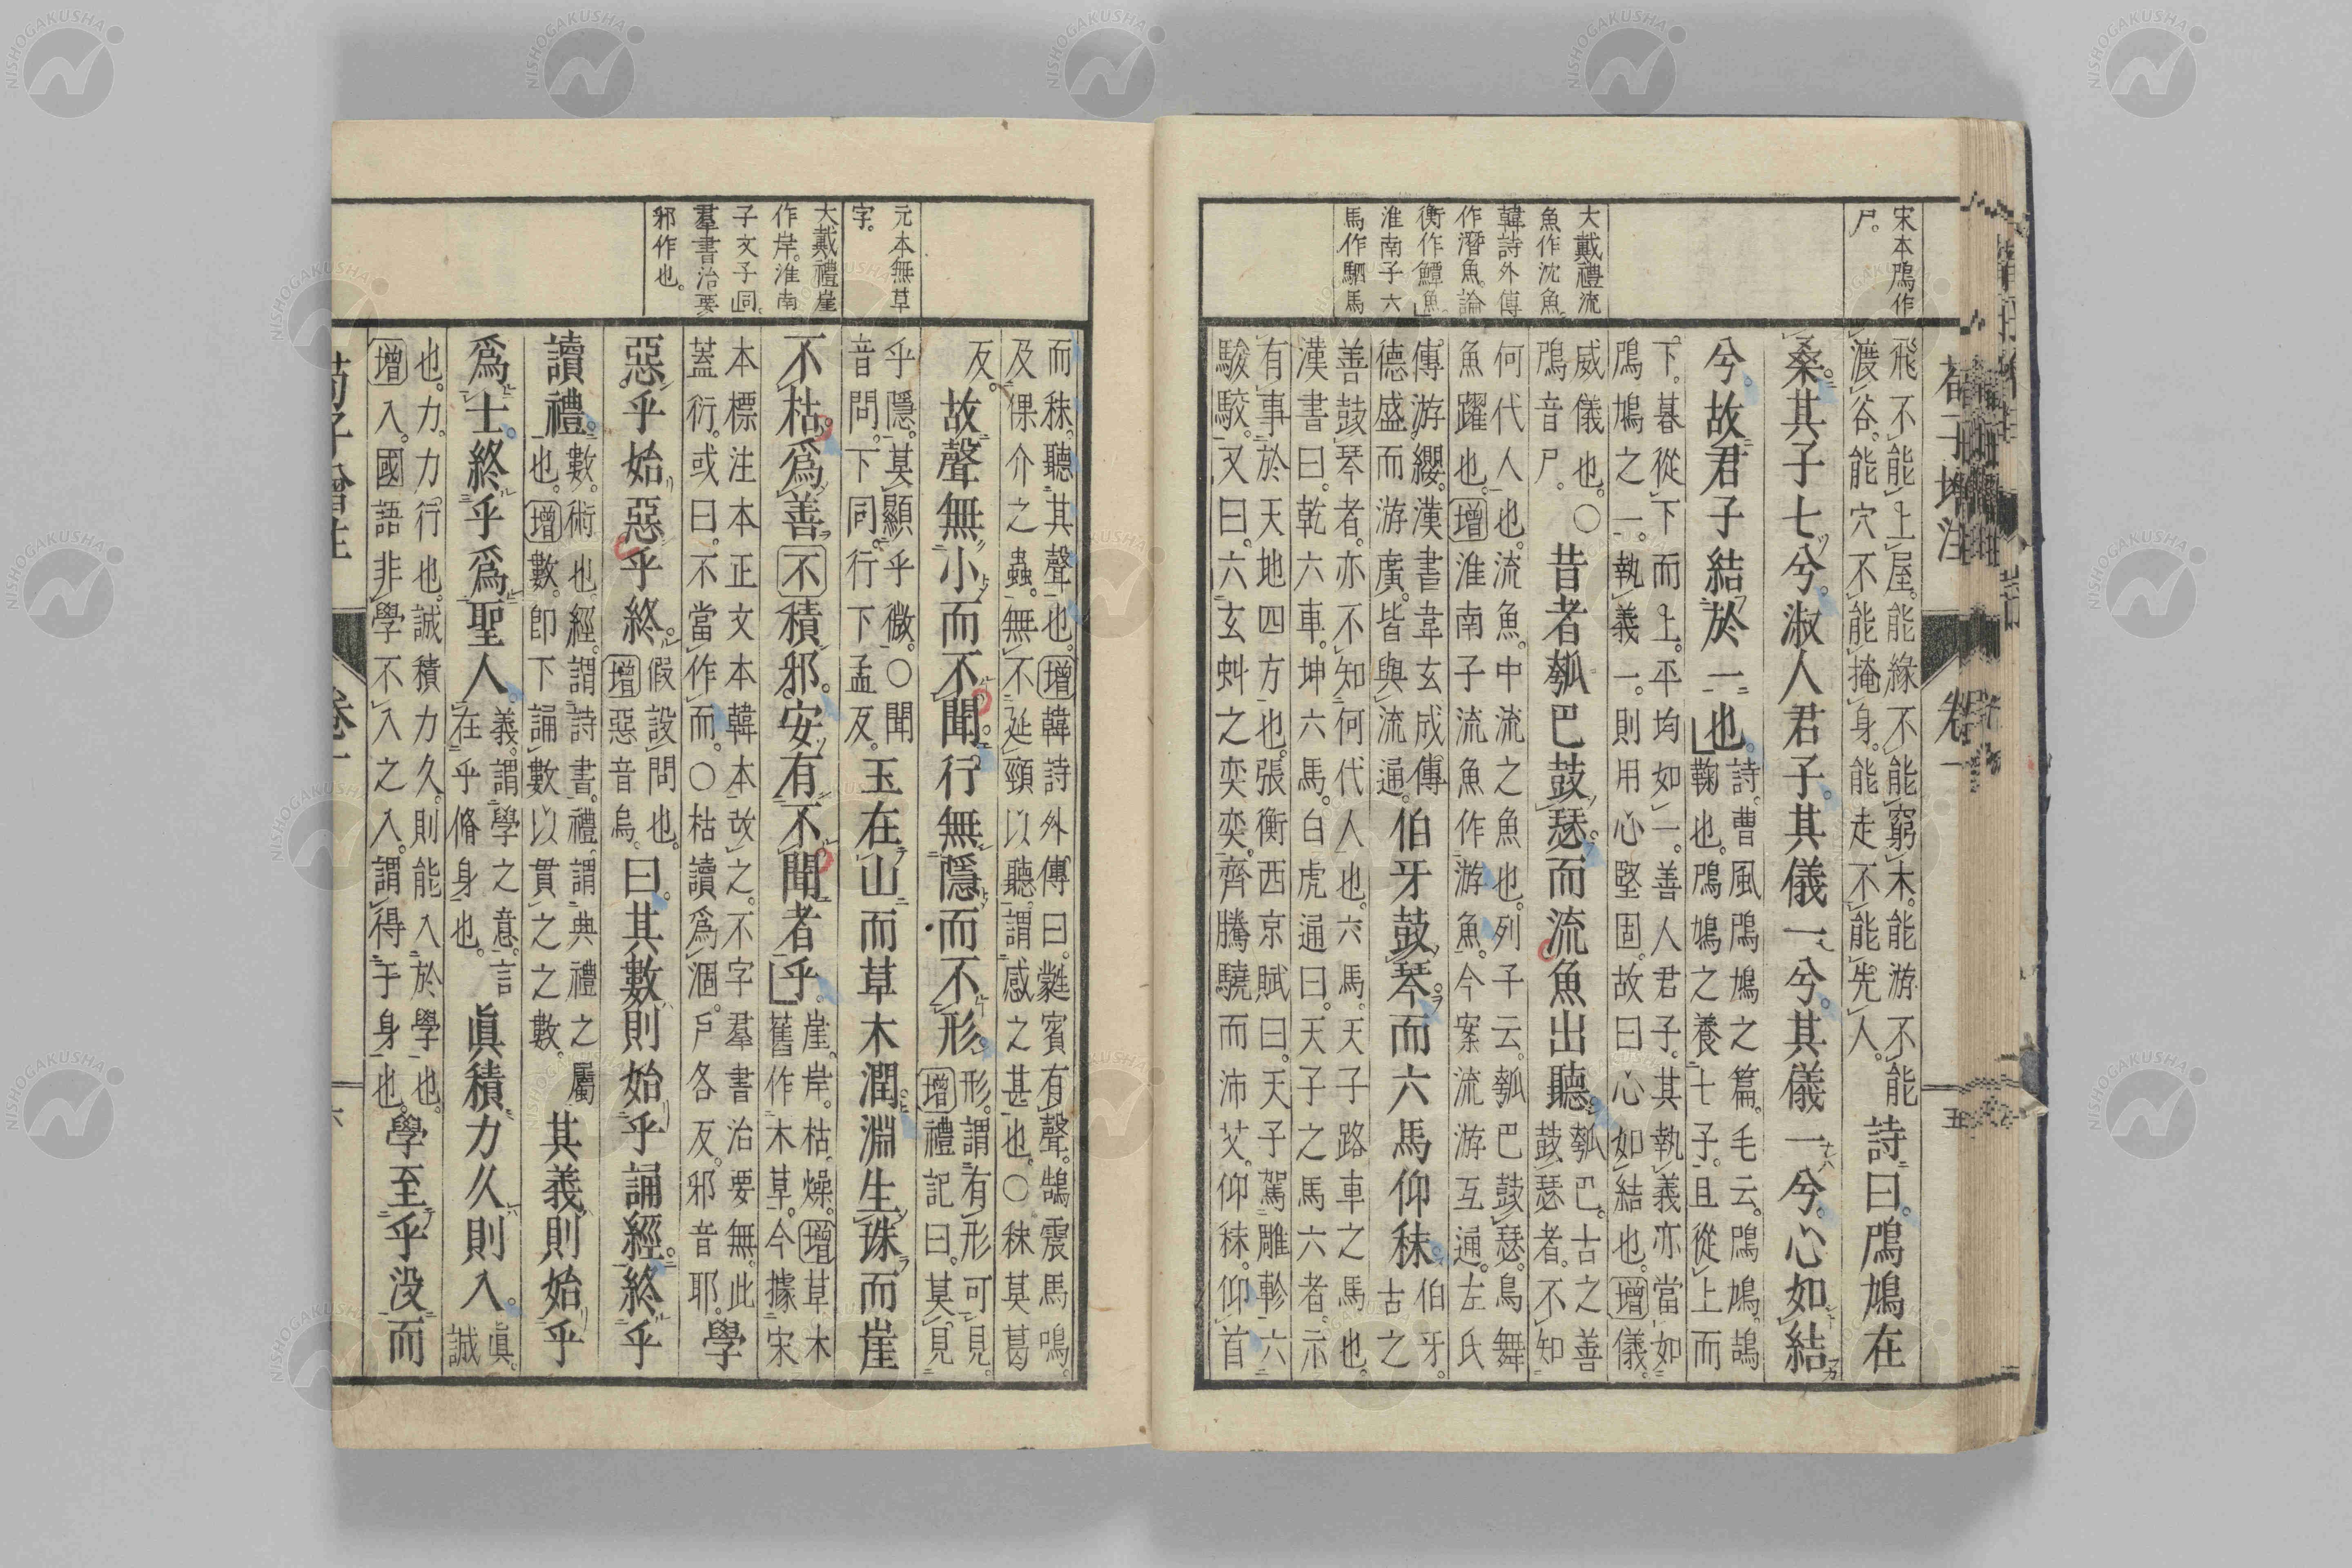 宋本鳲作
尸。
大戴禮流
魚作沈魚。
韓詩外傳
作潛魚。論
衡作鱏魚。
淮南子六
馬作駟馬
荀子增注 卷一 五
飛不能上屋。能緣不能窮木。能游不能
渡谷。能穴不能掩身。能走不能先人。
詩曰。鳲鳩在
桑其子七兮。淑人君子。其儀一兮。其儀一兮。心如結
兮。故君子結於一也。
詩。曹風鳲鳩之篇。毛云。鳲鳩。鴶
鞠也。鳲鳩之養七子。旦從上而
下。暮從下而上。平均如一。善人君子。其執義亦當如
鳲鳩之一。執義一。則用心堅固。故曰心如結也。增儀。
威儀也。○
鳲音尸。
昔者瓠巴鼓瑟。而流魚出聽。
瓠巴。古之善
鼓瑟者。不知
何代人也。流魚。中流之魚也。列子云。瓠巴鼓瑟。鳥舞
魚躍也。增淮南子流魚作游魚。今案流游互通。左氏
傳。游纓。漢書韋玄成傳
德盛而游廣。皆與流通。
伯牙鼓琴。而六馬仰秣。
伯牙。
古之
善鼓琴者。亦不知何代人也。六馬。天子路車之馬也。
漢書曰。乾六車。坤六馬。白虎通曰。天子之馬六者。示
有事於天地四方也。張衡西京賦曰。天子駕雕軫。六
駿駮。又曰。六玄虯之奕奕。齊騰驤而沛艾。仰秣。仰首
元本無草
字。
大戴禮崖
作岸。淮南
子文子同。
羣書治要
邪作也。
而秣。聽其聲也。增韓詩外傳曰。蕤賓有聲。鵠震馬鳴。
及倮介之蟲。無不延頸以聽。謂感之甚也。○秣莫葛
反。
故聲無小而不聞。行無隱而不形。
形。謂有形可見。
增禮記曰。莫見
乎隱。莫顯乎微。○聞
音問。下同。行下孟反。
玉在山而草木潤。淵生珠而崖
不枯。爲善不積邪。安有不聞者乎。
崖。岸。枯。燥。增草木
舊作木草。今據宋
本標注本正文本韓本改之。不字羣書治要無。此
蓋衍。或曰。不當作而。○枯讀爲涸。戶各反。邪音耶。
學
惡乎始。惡乎終。
假設問也。
增惡音烏。
曰。其數則始乎誦經。終乎
讀禮。
數。術也。經。謂詩書。禮。謂典禮之屬
也。增數。即下誦數以貫之之數。
其義則始乎
爲士。終乎爲聖人。
義。謂學之意。言
在乎脩身也。
眞積力久則入。
眞。
誠
也。力。力行也。誠積力久。則能入於學也。
增入。國語非學不入之入。謂得于身也。
學至乎没而
荀子增注 卷一 六
NISHOGAKUSHA